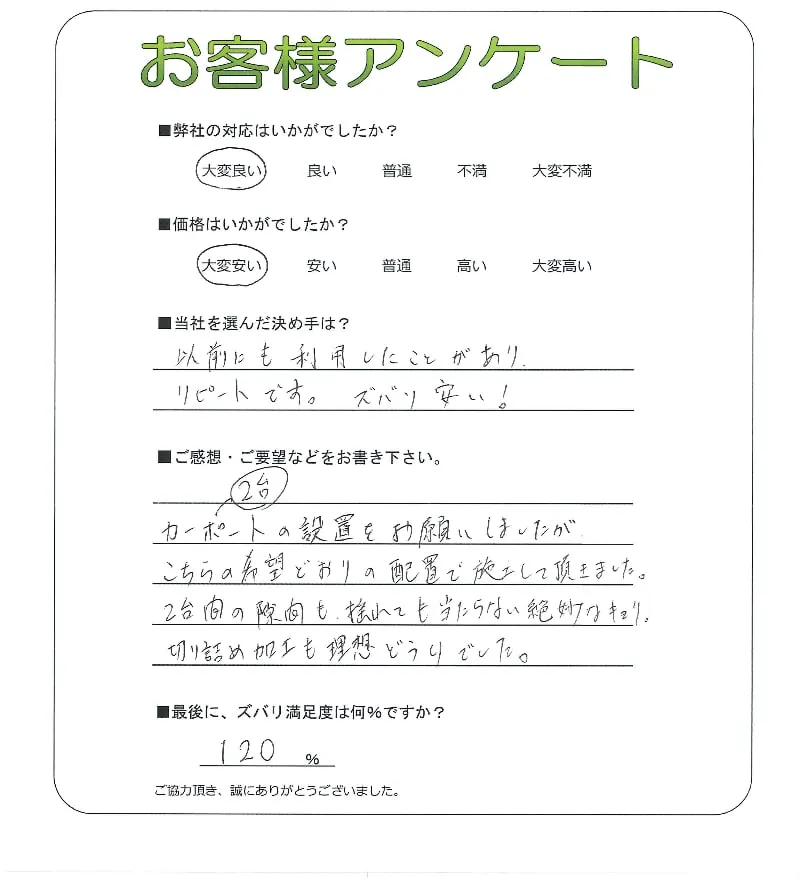 お客様アンケート
■弊社の対応はいかがでしたか？
大変良い 良い 普通 不満 大変不満
■価格はいかがでしたか？
大変安い 安い 普通 高い 大変高い
■当社を選んだ決め手は？
以前にも利用したことがあり、
リピートです。 ズバリ安い！
■ご感想・ご要望などをお書き下さい。
2台
カーポートの設置をお願いしましたが
こちらの希望どおりの配置で施工して頂きました。
2台間の隙間も、揺れても当たらない絶妙なキョリ。
切り詰め加工も理想どうりでした。
■最後に、ズバリ満足度は何%ですか？
120 %
ご協力頂き、誠にありがとうございました。